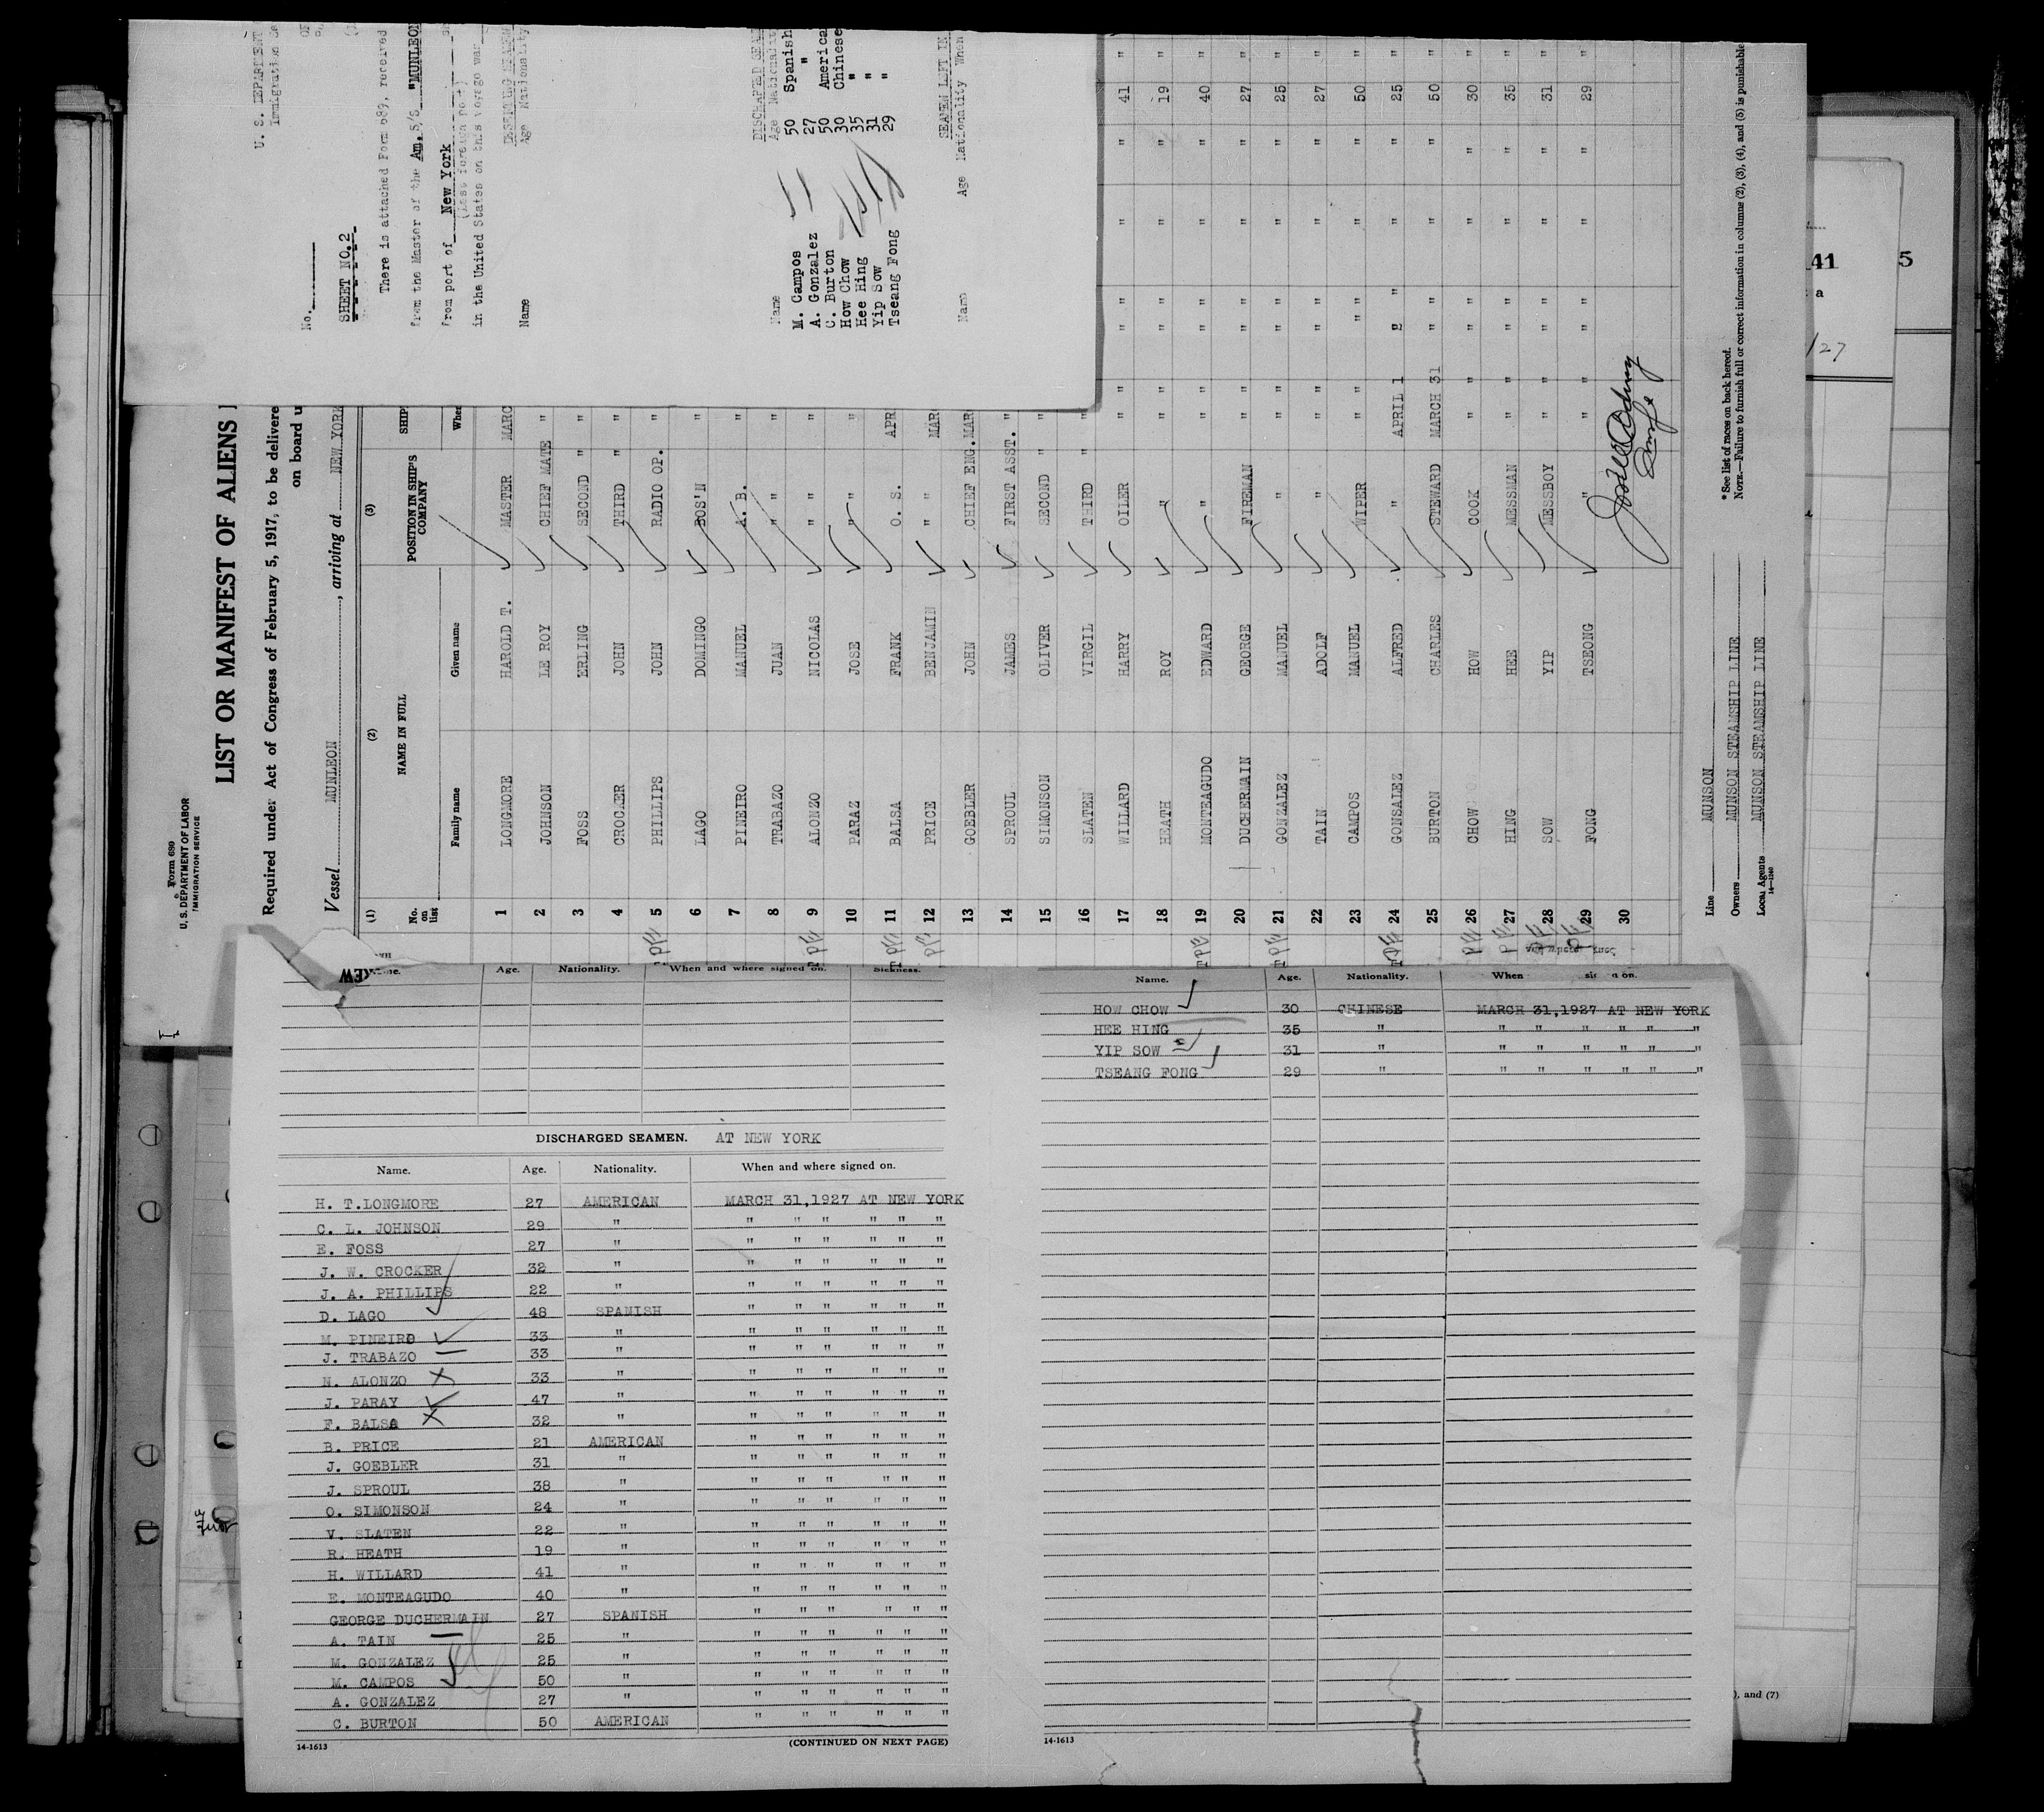 U. S. DEPARTMENT
No.
SHEET NO.2
There is attached Form 689, received
from the Master of the Am. S/S "MUNLEON
from port of New York
(Last foreign port)
in the United States on this voyage was
DESERTING SEAMEN
Name Age Nationality
DISCHARGED SEAM
Name Age Nationalit
M. Campos 50 Spanish
A. Gonzalez 27 "
C. Burton 50 America
How Chow 30 Chinese
Hee Hing 35 "
Yip Sow 31 "
Tseang Fong 29 "
SEAMEN LEFT IN
Name Age Nationality When
Form 680
U. S. DEPARTMENT OF LABOR
IMMIGRATION SERVICE
LIST OR MANIFEST OF ALIENS
Required under Act of Congress of February 5, 1917, to be delivere
on board u
Vessel MUNLEON, arriving at NEW YORK
(1) (2) (3)
No. on list NAME IN FULL POSITION IN SHIP'S COMPANY SHIP
Family name Given name Whe
1 LONGMORE HAROLD T. MASTER MARC
2 JOHNSON LE ROY CHIEF MATE "
3 FOSS ERLING SECOND " "
4 CROCKER JOHN THIRD " "
5 PHILLIPS JOHN RADIO OP. "
6 LAGO DOMINGO BOS'N "
7 PINEIRO MANUEL A. B. "
8 TRABAZO JUAN " " "
9 ALONZO NICOLAS " " "
10 PARAZ JOSE " " "
11 BALSA FRANK O. S. APR
12 PRICE BENJAMIN " " MAR
13 GOEBLER JOHN CHIEF ENG. MAR
14 SPROUL JAMES FIRST ASST. "
15 SIMONSON OLIVER SECOND " "
16 SLATEN VIRGIL THIRD " "
17 WILLARD HARRY OILER " " " " " " 41 "
18 HEATH ROY " " " " " " 19 "
19 MONTEAGUDO EDWARD " " " " " " 40 "
20 DUCHERMAIN GEORGE FIREMAN " " " " " 27 "
21 GONZALEZ MANUEL " " " " " " 25 "
22 TAIN ADOLF " " " " " " 27 "
23 CAMPOS MANUEL WIPER " " " " " " 50 "
24 GONSALEZ ALFRED " APRIL 1 " " " " 25 "
25 BURTON CHARLES STEWARD MARCH 31 " " " " 50 "
26 CHOW HOW COOK " " " " " " 30 "
27 HING HEE MESSMAN " " " " " " 35 "
28 SOW YIP MESSBOY " " " " " " 31 "
29 FONG TSEONG " " " " " " " 29 "
30
Line MUNSON
Owners MUNSON STEAMSHIP LINE
Local Agents MUNSON STEAMSHIP LINE
14-1240
* See list of races on back hereof.
NOTE.—Failure to furnish full or correct information in columns (2), (3), (4), and (5) is punishable
41
a
5
/27
), and (7)
Age. Nationality. When and where signed on. Sickness.
DISCHARGED SEAMEN. AT NEW YORK
Name. Age. Nationality. When and where signed on.
H. T.LONGMORE 27 AMERICAN MARCH 31,1927 AT NEW YORK
C. L. JOHNSON 29 " " " " " " "
E. FOSS 27 " " " " " " "
J. W. CROCKER 32 " " " " " " "
J. A. PHILLIPS 22 " " " " " " "
D. LAGO 48 SPANISH " " " " " "
M. PINEIRO 33 " " " " " " "
J. TRABAZO 33 " " " " " " "
N. ALONZO 33 " " " " " " "
J. PARAY 47 " " " " " " "
F. BALSA 32 " " " " " " "
B. PRICE 21 AMERICAN " " " " " "
J. GOEBLER 31 " " " " " " "
J. SPROUL 38 " " " " " " "
O. SIMONSON 24 " " " " " " "
V. SLATEN 22 " " " " " " "
R. HEATH 19 " " " " " " "
H. WILLARD 41 " " " " " " "
E. MONTEAGUDO 40 " " " " " " "
GEORGE DUCHERMAIN 27 SPANISH " " " " " "
A. TAIN 25 " " " " " " "
M. GONZALEZ 25 " " " " " " "
M. CAMPOS 50 " " " " " " "
A. GONZALEZ 27 " " " " " " "
C. BURTON 50 AMERICAN " " " " " "
14-1613 (CONTINUED ON NEXT PAGE)
Name. Age. Nationality. When on.
HOW CHOW 30 CHINESE MARCH 31,1927 AT NEW YORK
HEE HING 35 " " " " " " "
YIP SOW 31 " " " " " " "
TSEANG FONG 29 " " " " " " "
14-1613